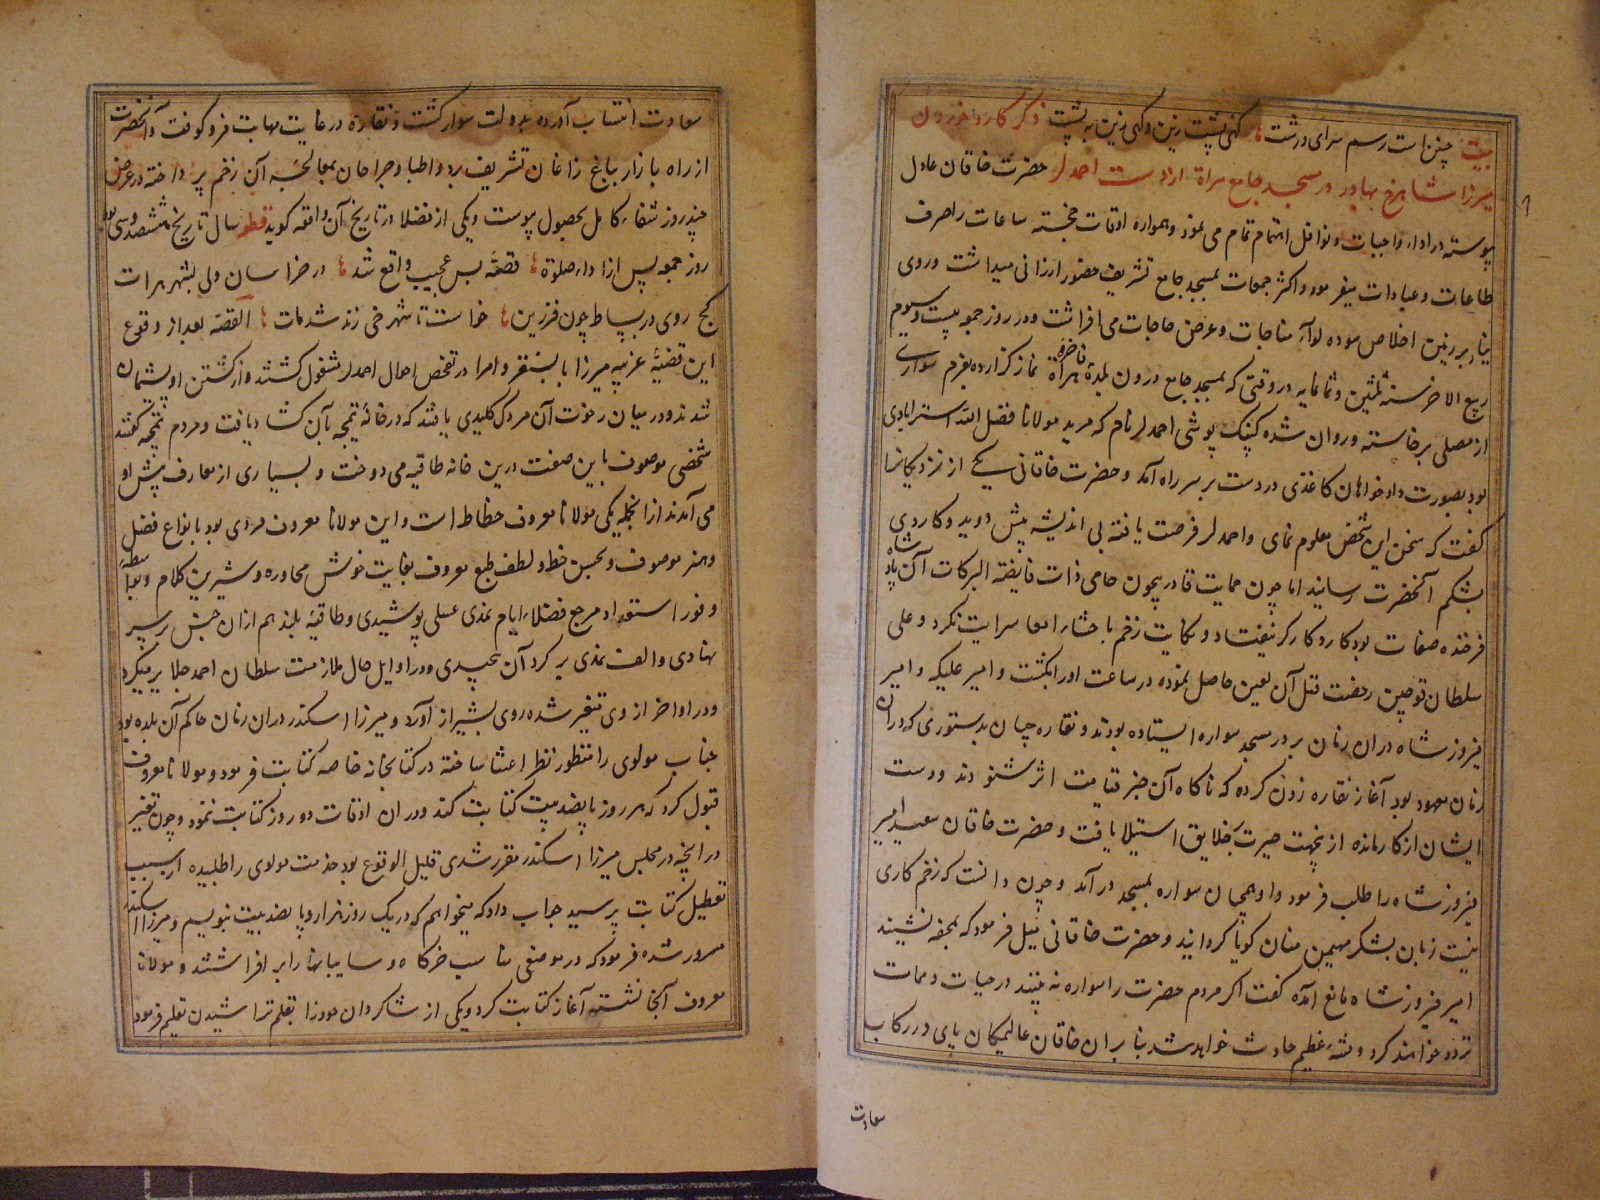 بیت چنین است رسم سرای درشت گهی پشت زین و گهی زین به پشت ذکر کارد خوردن
میرزا شاهرخ بهادر در مسجد جامع هراة از دست احمد لر حضرت خاقان عادل
پیوسته در اداء واجبات و نوافل اهتمام تمام می نمود و همواره اوقات خجسته ساعات را صرف
طاعات و عبادات میفرمود و اکثر جمعات بمسجد جامع تشریف حضور ارزانی میداشت و روی
نیاز بر زمین اخلاص سوده لوآء مناجات و عرض حاجات می افراشت و در روز جمعه بیست و سیوم
ربیع الاخر سنه ثلثین و ثمانمایه در وقتی که بمسجد جامع درون بلدۀ فاخرۀ هراة نماز گزارده بعزم سواری
از مصلی برخاسته و روان شده کپنک پوشی احمد لر نام که مرید مولانا فضل الله استرابادی
بود بصورت دادخواهان کاغذی در دست بر سر راه آمد و حضرت خاقانی یکی از نزدیکانرا
گفت که سخن این شخص معلوم نمای و احمد لر فرصت یافته بی اندیشه پیش دوید و کاردی
بشکم آنحضرت رسانید اما چون حمایت قادر بیچون حامی ذات فایضة البرکات آن پادشاه
فرخنده صفات بود کارد کارگر نیفتاد و نکایت زخم باحشا و امعا سرایت نکرد و علی
سلطان قوچین رخصت قتل آن لعین حاصل نموده در ساعت او را بکشت و امیر علیکه و امیر
فیروز شاه در ان زمان بر در مسجد سواره ایستاده بودند و نقاره چیان بدستوری که در ان
زمان معهود بود آغاز نقاره زدن کرده که ناگاه آن خبر قیامت اثر شنودند و دست
ایشان از کار مانده ازینجهت حیرت بخلایق استیلا یافت و حضرت خاقان سعید امیر
فیروز شاه را طلب فرمود و او همچنان سواره بمسجد درآمد و چون دانست که زخم کاری
نیست زبان بشکر مهیمن منان گویا گردانید و حضرت خاقانی میل فرمود که بمحفه نشیند
امیر فیروز شاه مانع آمده گفت اگر مردم حضرت را سواره نه بینند در حیات و ممات
تردد خواهند کرد و فتنۀ عظیم حادث خواهد شد بنا بران خاقان عالیمکان پای در رکاب
سعادت
سعادت انتساب آورده بدولت سوار گشت و نقاره در غایت مهابت فرو کوفت و آنحضرت
از راه بازار بباغ زاغان تشریف برد و اطبا و جراحان بمعالجۀ آن زخم پرداخته در عرض
چند روز شفاء کامل بحصول پیوست و یکی از فضلا در تاریخ آن واقعه گوید قطعه سال تاریخ هشتصد و سی بود
روز جمعه پس از اداء صلوة قصۀ بس عجیب واقع شد در خراسان ولی بشهر هرات
کج روی در بساط چون فرزین خواست تا شهرخی زند شد مات القصه بعد از وقوع
این قضیۀ غریبه میرزا بایسنقر و امرا در تفحص احوال احمد لر مشغول گشتند و از کشتن او پشیمان
شدند و در میان رخوت آن مردک کلیدی یافتند که در خانۀ تیمچه بآن گشاد یافت و مردم تیمچه گفتند
شخصی موصوف باین صفت درین خانه طاقیه می دوخت و بسیاری از معارف پیش او
می آمدند از انجمله یکی مولانا معروف خطاط است و این مولانا معروف مردی بود بانواع فضل
و هنر موصوف و بحسن خط و لطف طبع معروف بغایت خوش محاوره و شیرین کلام و بواسطه
وفور استعداد مرجع فضلاء ایام نمدی عسلی پوشیدی و طاقیۀ بلند هم از ان جنس بر سر
نهادی و الف نمدی بر گرد آن پیچیدی و در اوایل حال ملازمت سلطان احمد جلایر میکرد
و در اواخر از وی متغیر شده روی بشیراز آورد و میرزا اسکندر در ان زمان حاکم آن بلده بود
جناب مولوی را منظور نظر اعتنا ساخته در کتابخانه خاصه کتابت فرمود و مولانا معروف
قبول کرد که هر روز پانصد بیت کتابت کند و در ان اوقات دو روز کتابت ننمود و چون تغییر
در آنچه در مجلس میرزا اسکندر مقرر شدی قلیل الوقوع بود خدمت مولوی را طلبیده از سبب
تعطیل کتابت پرسید جواب داد که میخواهم که در یک روز هزار و پانصد بیت بنویسم و میرزا اسکندر
مسرور شده فرمود که در موضعی مناسب خرگاه و سایبانها را بر افراشتند و مولانا
معروف آنجا نشسته آغاز کتابت کرد و یکی از شاگردان خود را بقلم تراشیدن تعلیم فرمود